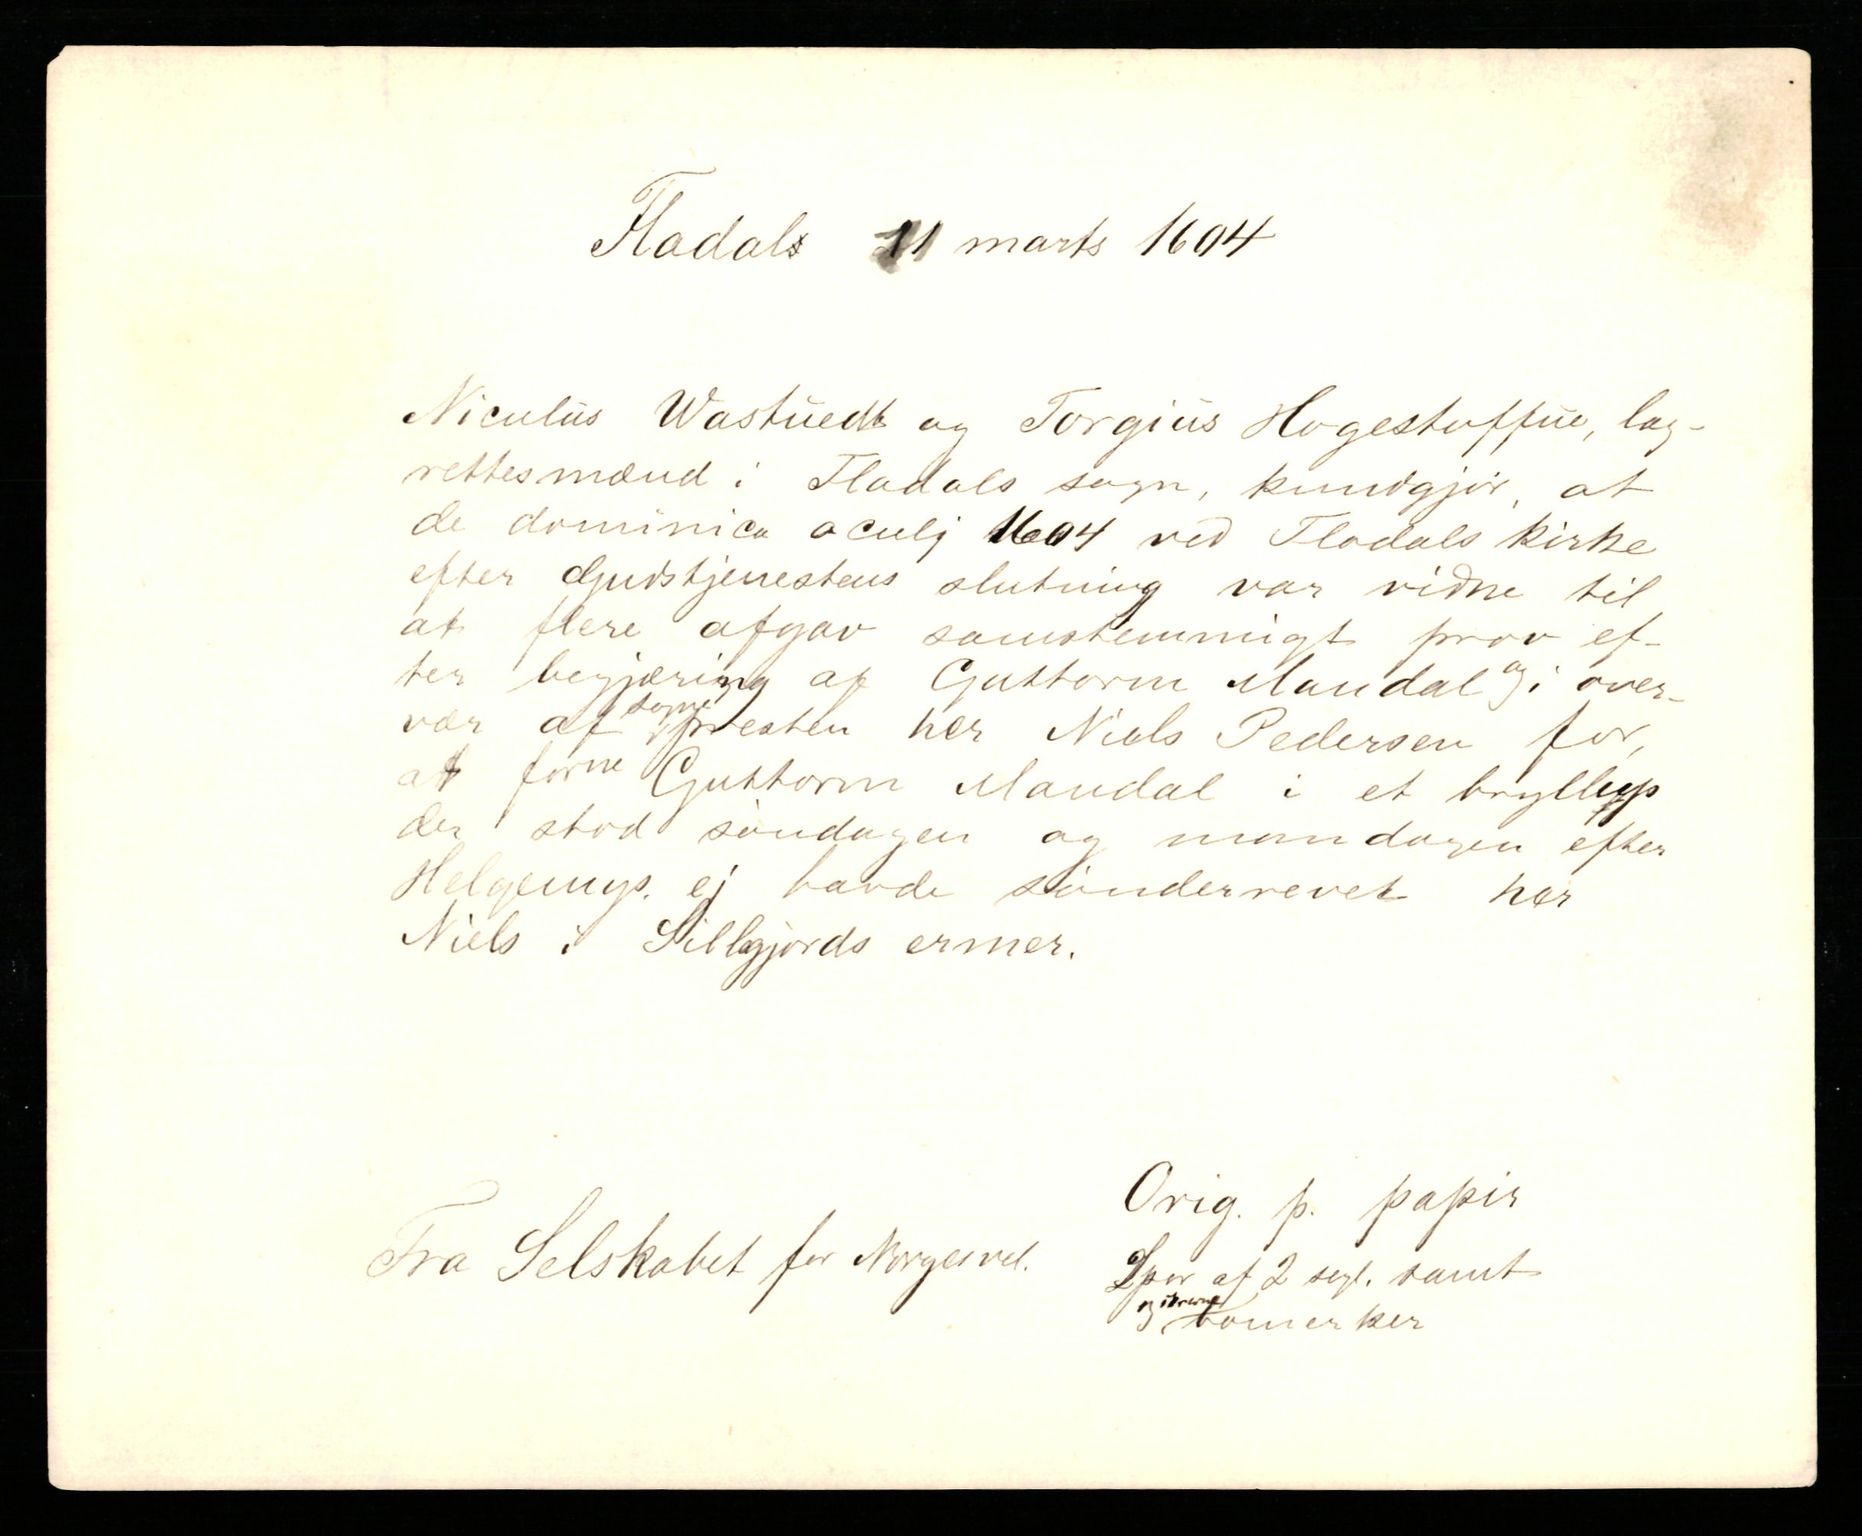 Fladals 11 marts 1604
Niculus Wastuedt og Torgius Hogestuffue, lag-
rettesmænd i Fladals sogn, kundgjør, at
de dominica oculj 1604 ved Fladals kirke
efter Gudstjenestens slutning var vidne til
at flere afgav samstemmigt prov ef-
ter begjæring af Guttorm Mandal og i over-
vær af sognepresten her Niels Pedersen for,
at forne Guttorm Mandal i et bryllup
der stod søndagen og mandagen efter
Helgemys. ej havde sønderrevet her
Niels i Sillgjords ermer.
Orig. p. papir
Fra Selskabet for Norges vel.
Spor af 2 segl. samt
bomerker